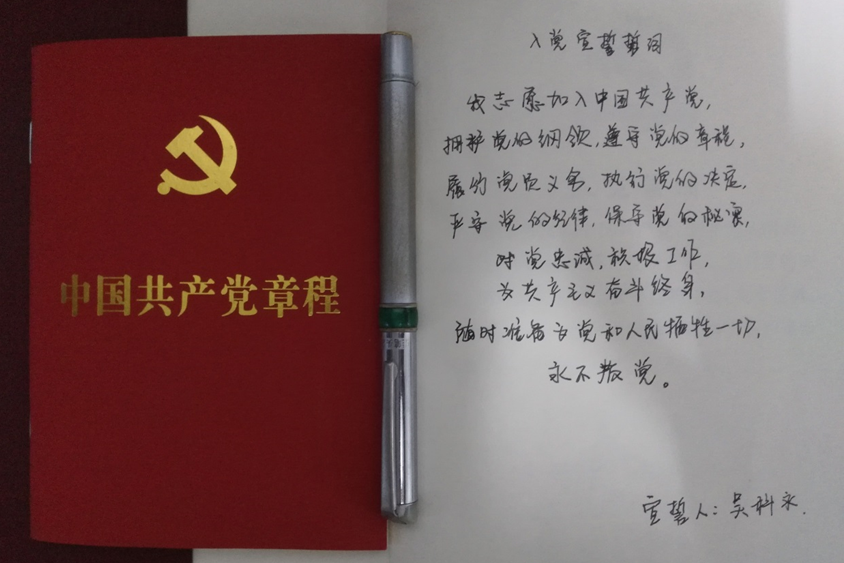 中国共产党章程
入党宣誓誓词
我志愿加入中国共产党，
拥护党的纲领，遵守党的章程，
履行党员义务，执行党的决定，
严守党的纪律，保守党的秘密，
对党忠诚，积极工作，
为共产主义奋斗终身，
随时准备为党和人民牺牲一切，
永不叛党。
宣誓人：吴科永